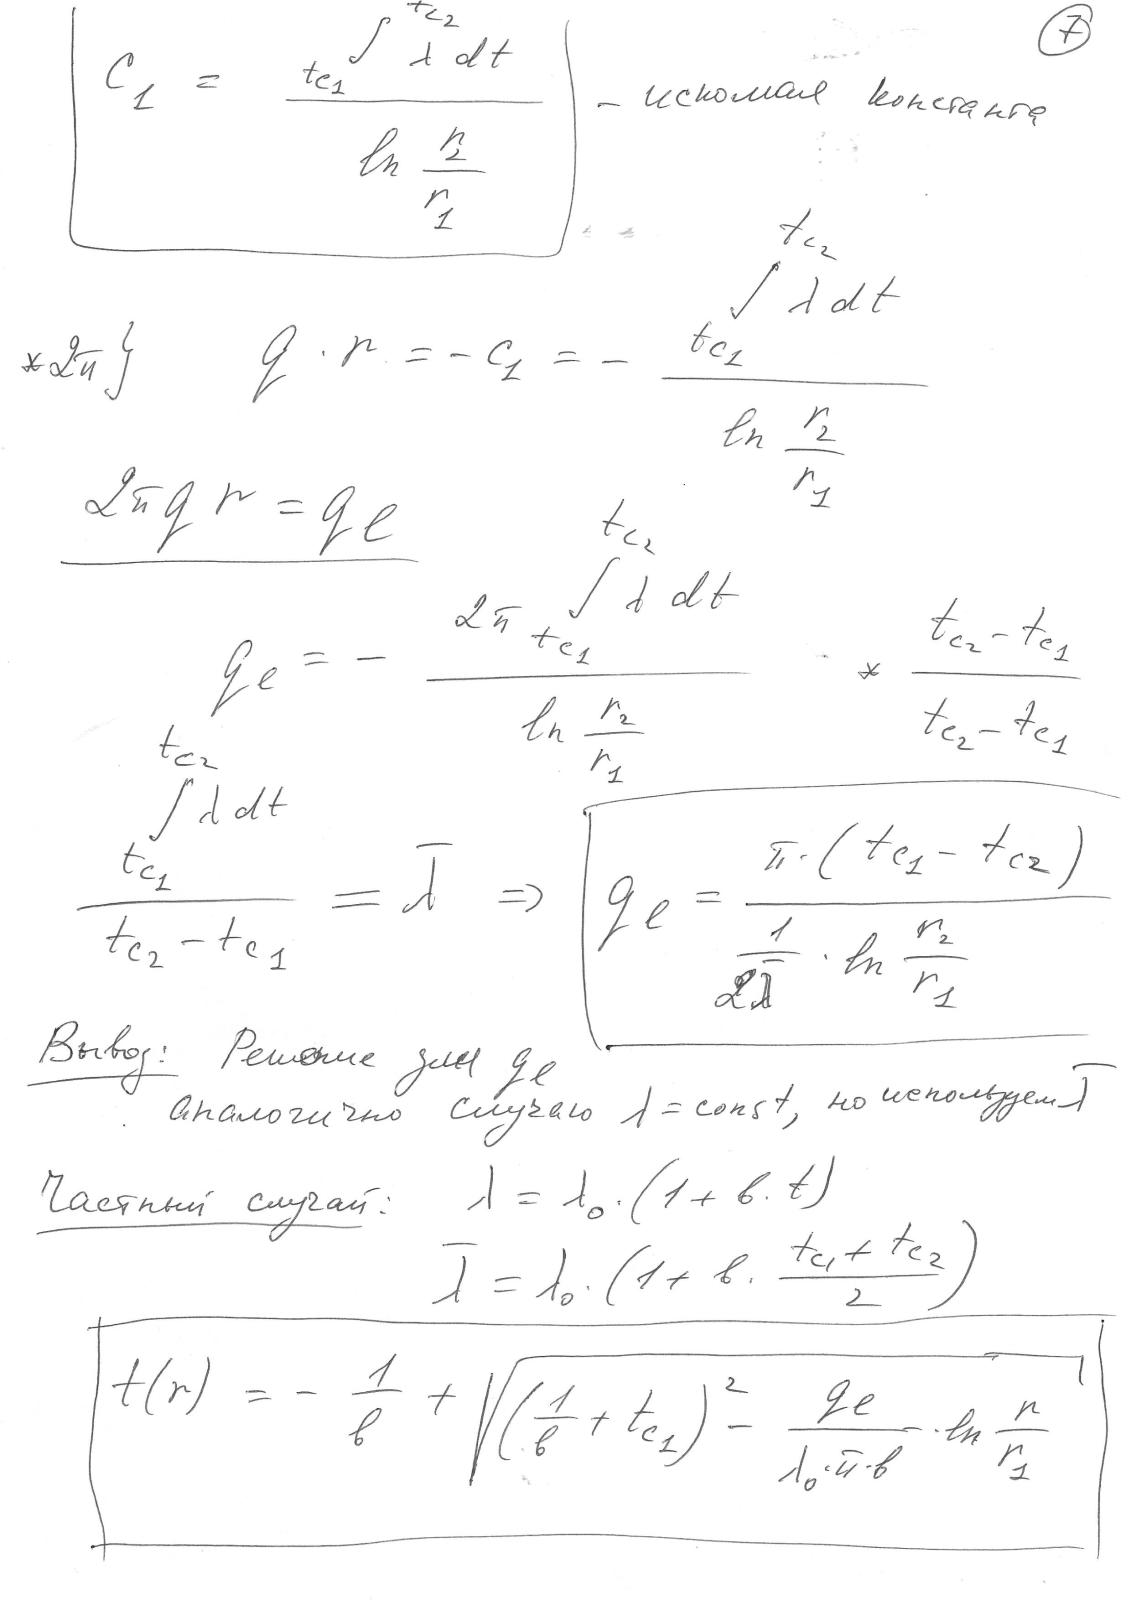 7
C₁ = ∫_{t_{c1}}^{t_{c2}} λ dt / ln (r₂/r₁) – искомая константа
*2π} q · r = - C₁ = - ∫_{t_{c1}}^{t_{c2}} λ dt / ln (r₂/r₁)
2π q r = q_ℓ
q_ℓ = - 2π ∫_{t_{c1}}^{t_{c2}} λ dt / ln (r₂/r₁) * (t_{c2} - t_{c1}) / (t_{c2} - t_{c1})
∫_{t_{c1}}^{t_{c2}} λ dt / (t_{c2} - t_{c1}) = λ̅ ⇒ q_ℓ = π · (t_{c1} - t_{c2}) / (1/(2λ̅) · ln (r₂/r₁))
Вывод: Решение для q_ℓ
аналогично случаю λ = const, но используем λ̅
Частный случай: λ = λ₀ · (1 + в · t)
λ̅ = λ₀ · (1 + в · (t_{c1} + t_{c2})/2)
t(r) = - 1/в + √((1/в + t_{c1})² - q_ℓ/(λ₀ · π · в) · ln (r/r₁))